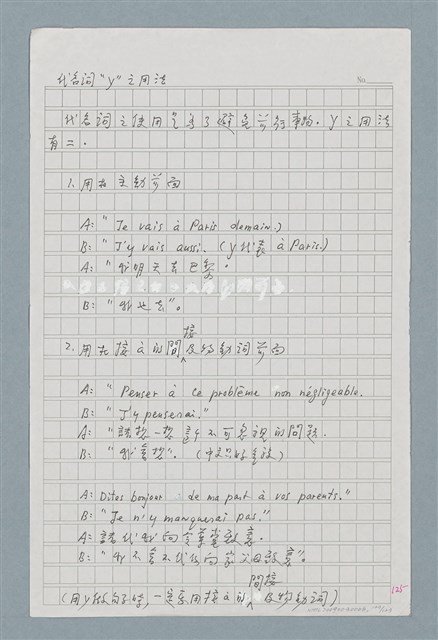 代名詞 "y" 之用法
No.
代名詞之使用是為了避免前行事物. y 之用法
有二.
1. 用在主動前面
A: "Je vais à Paris demain.)
B: "J'y vais aussi. (y 代表 à Paris.)
A: "我明天去巴黎。
B: "我也去"。
2. 用在接 à 的間接及物動詞前面
A: "Penser à ce problème non négligeable.
B: "J'y penserai."
A: "請想一想這個不可忽視的問題.
B: "我會想". (中文只好意譯)
A: Dites bonjour de ma part à vos parents."
B: "Je n'y manquerai pas."
A: 請代我向令尊堂致意。
B: "我不會不代你向家父母致意"。
(用 y 做句子時, 一定要用接 à 的間接及物動詞)
125